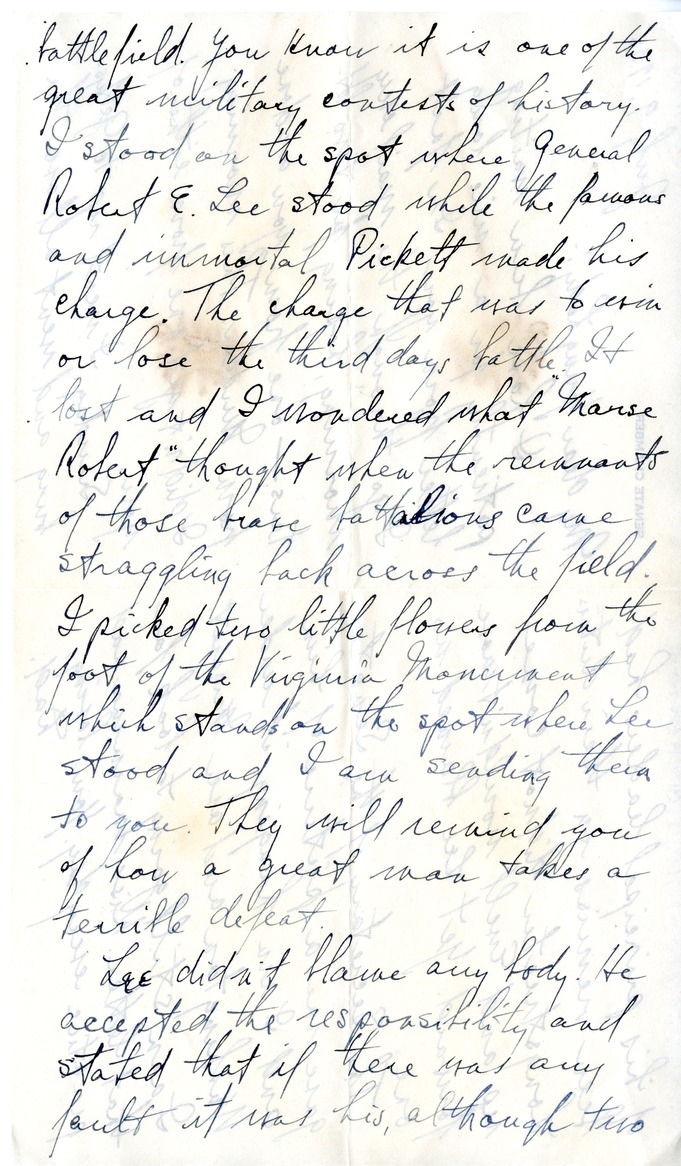 battlefield. You know it is one of the
great military contests of history.
I stood on the spot where General
Robert E. Lee stood while the famous
and immortal Pickett made his
charge. The charge that was to win
or lose the third days battle. It
lost and I wondered what "Marse
Robert" thought when the remnants
of those brave battalions came
straggling back across the field.
I picked two little flowers from the
foot of the Virginia Monument
which stands on the spot where Lee
stood and I am sending them
to you. They will remind you
of how a great man takes a
terrible defeat.
Lee didn't blame any body. He
accepted the responsibility and
stated that if there was any
fault it was his, although two